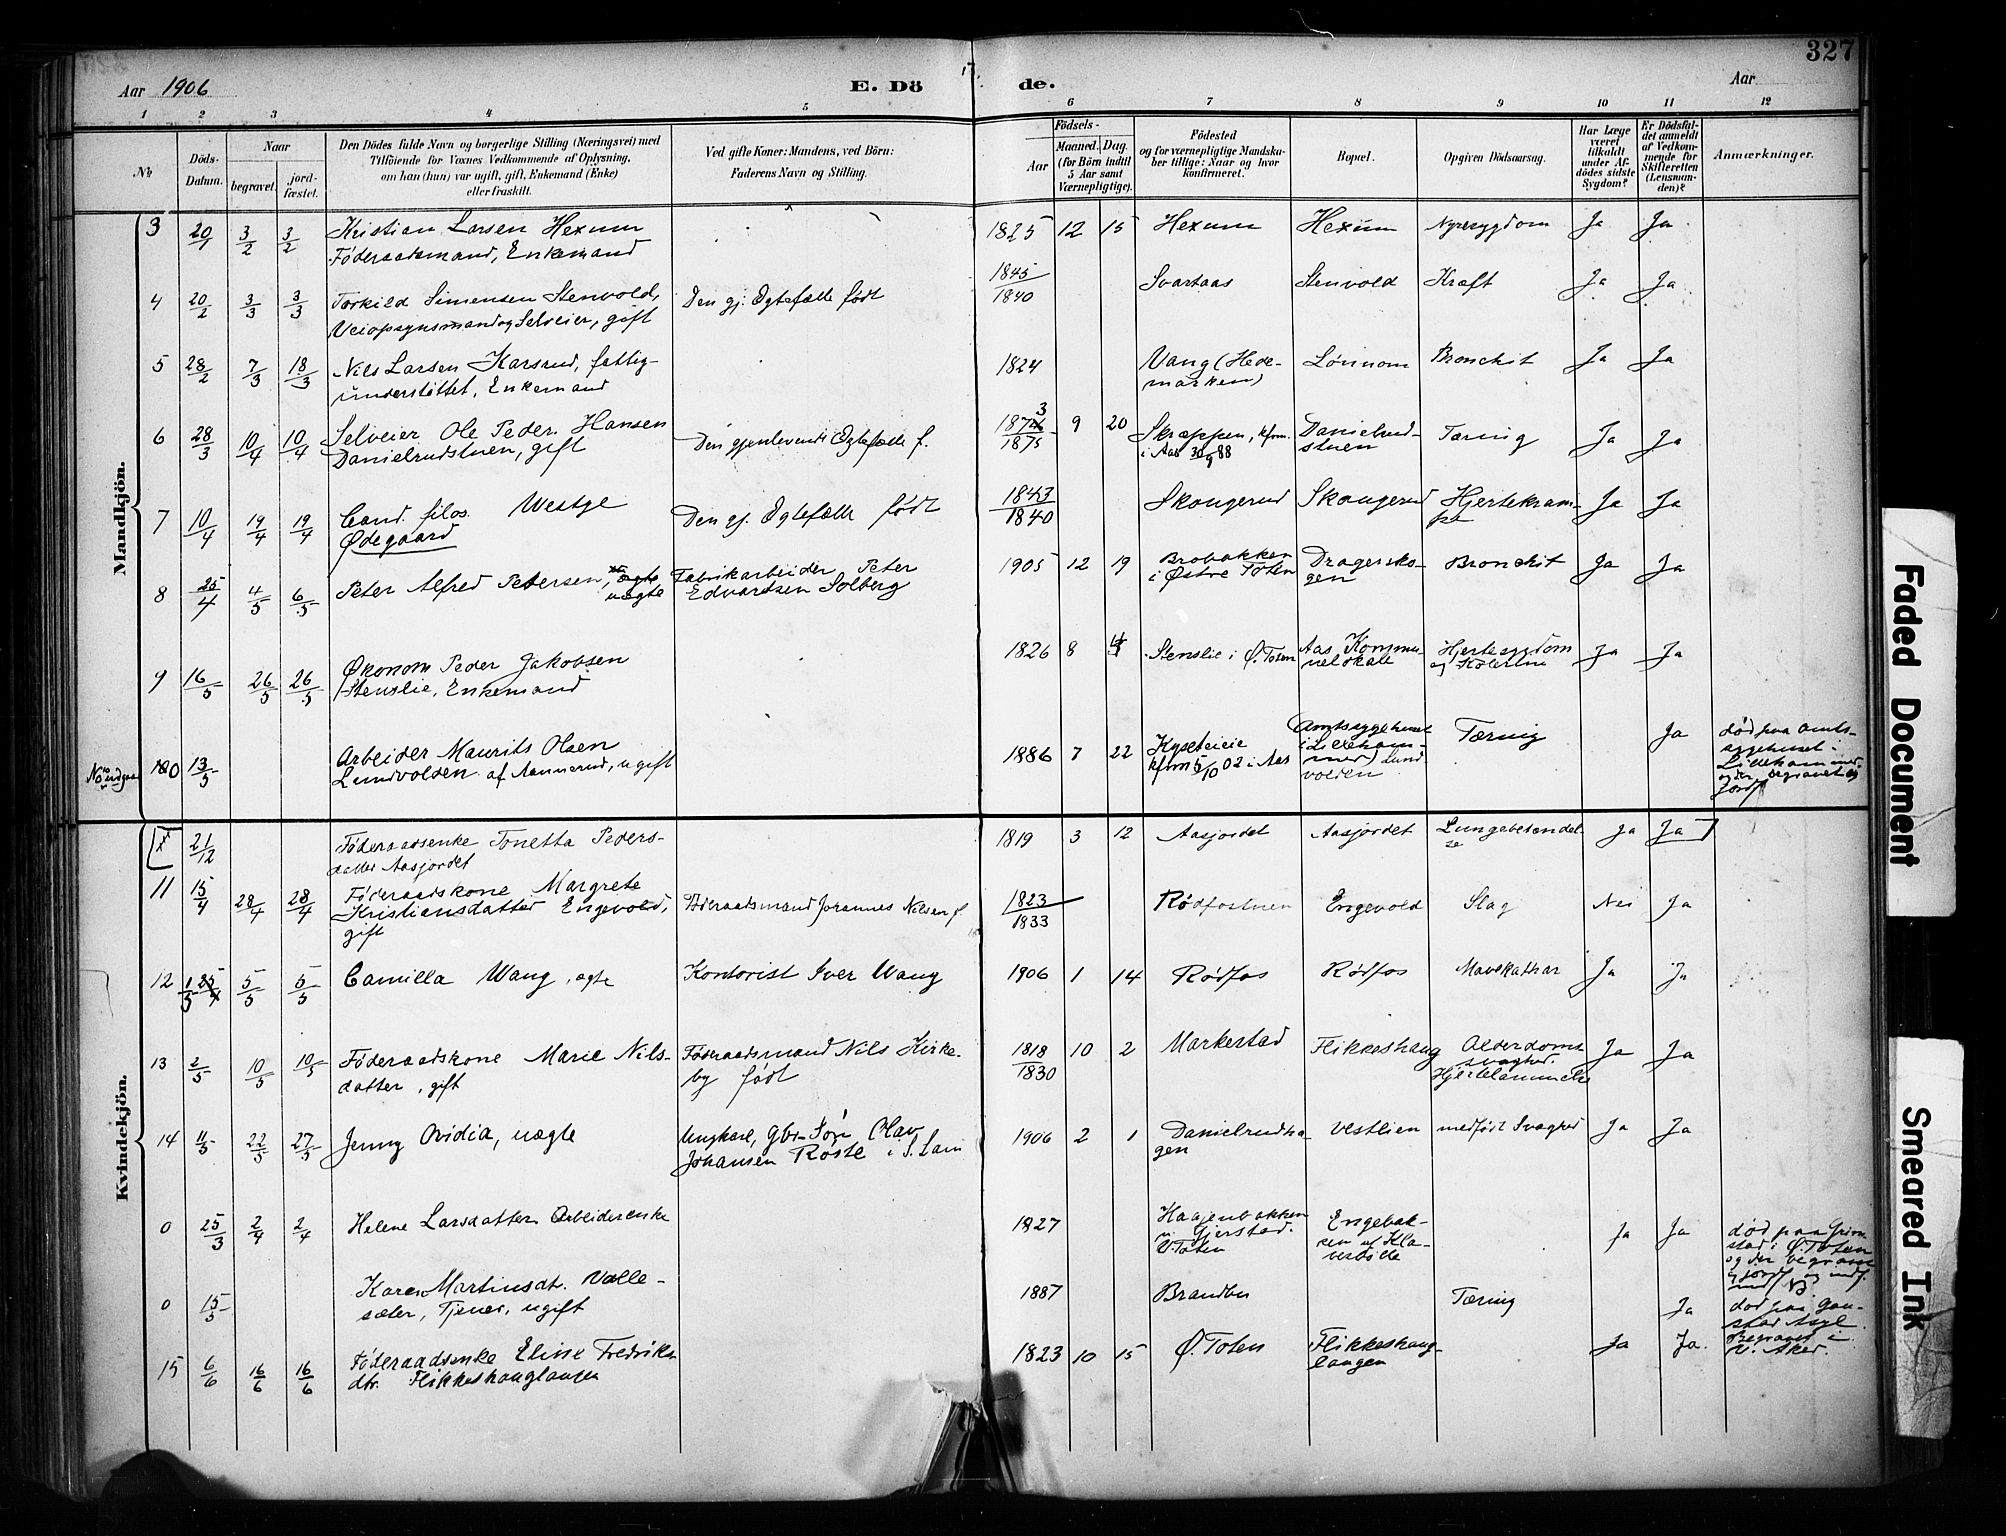 327
Aar 1906
E. Dö de.
Aar
1 2 3 4 5 6 7 8 9 10 11 12
No
Döds-
Datum.
Naar
begravet.
jord-
fæstet.
Den Dödes fulde Navn og borgerlige Stilling (Næringsvei) med
Tilföiende for Voxnes Vedkommende af Oplysning,
om han (hun) var ugift, gift, Enkemand (Enke)
eller fraskilt.
Ved gifte Koner: Mandens, ved Börn:
Faderens Navn og Stilling.
Födsels-
Aar
Maaned. Dag.
(for Börn indtil
5 Aar samt
Værnepligtige).
Födested
og for værnepligtige Mandska-
ber tillige: Naar og hvor
konfirmeret.
Bopæl.
Opgiven Dödsaarsag.
Har Læge
været
tilkaldt
under Af-
dödes sidste
Sygdom?
Er Dödsfal-
det anmeldt
af Vedkom-
mende for
Skifteretten
(Lensman-
den)?
Anmærkninger.
Mandkjön.
3 20/1 3/2 3/2 Kristian Larsen Hexum 1825 12 15 Hexum Hexum Nyresygdom Ja Ja
Föderaadsmand, Enkemand
4 20/2 3/3 3/3 Torkild Simensen Stenvold, Den gj. Ægtefælle født 1845/1840 Svartaas Stenvold Kræft Ja Ja
Veiopsynsmand og Selveier, gift
5 28/2 7/3 18/3 Nils Larsen Karsrud, fattig- 1824 Vang (Hede- Lønnom Bronchit Ja Ja
understøttet, Enkemand marken)
6 28/3 10/4 10/4 Selveier Ole Peder Hansen Den gjenlevende Ægtefælle f. 1873/1875 9 20 Skræppen, kfrm. Danielrud- Tæring Ja Ja
Danielrudstuen, gift i Aas 30/9 88 stuen
7 10/4 19/4 19/4 Cand. filos. Westye Den gj. Ægtefælle født 1843/1840 Skougerud Skougerud Hjertekram- Ja Ja
Ødegaard pe
8 25/4 4/5 6/5 Peter Alfred Petersen, ægte Fabrikarbeider Peter 1905 12 19 Brobakken Dragersko- Bronchit Ja Ja
uægte Edvardsen Solberg i Østre Toten gen
9 16/5 26/5 26/5 Økonom Peder Jakobsen 1826 8 4 Stenslie i Ø. Toten Aas Kommu- Hjertesygdom Ja Ja
Stenslie, Enkemand nelokale og
10 13/5 Arbeider Maurits Olsen 1886 7 22 Amtssygehuset Tæring Ja død paa Amts-
Lundvolden af Aannerud, ugift kfrm 5/10 02 i Aas i Lilleham- sygehuset
mer) Lund- Lillehammer
volden og der begravet og
jordf
Kvindekjön.
21/12 Føderaadsenke Tonetta Peders- 1819 3 12 Aasjordet Aasjordet Lungebetændel- Ja Ja
datter Aasjordet se
11 15/4 28/4 28/4 Føderaadskone Margrete Føderaadsmand Johannes Nilsen f. 1823/1833 Rødfostuen Engevold Slag Nei Ja
Kristiansdatter Engevold,
gift
12 1/5 5/5 5/5 Camilla Wang, ægte Kontorist Iver Wang 1906 1 14 Rødfos Rødfos Mavekathar Ja Ja
13 2/5 10/5 10/5 Føderaadskone Marie Nils- Føderaadsmand Nils Kirke- 1818/1830 10 2 Markestad Flikkeshaug Alderdoms Ja Ja
datter, gift by født svaghed.
Hjertelammelse
14 11/5 22/5 27/5 Jenny Ovidia, uægte Ungkarl, Gbr. Søn Olav 1906 2 1 Danielrudha- Vestlien medfødt Svaghed Ja Ja
Johansen Røste i S. Lain gen
0 25/3 2/4 2/4 Helene Larsdatter Arbeiderenke 1827 Haajenbakken Engebak- Ja Ja død paa Grim-
u. Gjerstad. ken af Kla- stad i Ø. Toten
V. Toten og der begravet
0 15/5 Karen Martinsdt. Valle- 1887 Brandbu Tæring Ja død paa Gau-
sæter, Tjener, ugift stad Asyl
Begravet i
V. Aker.
15 6/6 16/6 16/6 Føderaadsenke Eline Fredriks 1823 10 15 Ø. Toten Flikkeshaug- Ja Ja
dtr. Flikkeshauglangen langen
Faded Document
Smeared Ink